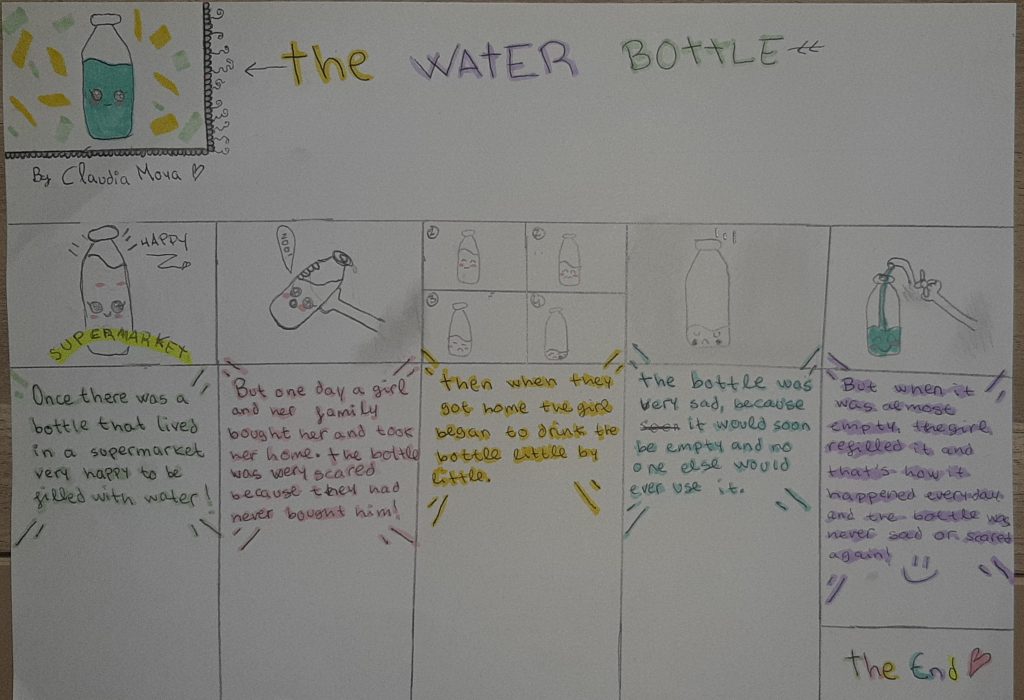 the WATER BOTTLE
By Claudia Moya
HAPPY
SUPERMARKET
NOO!
1
2
3
4
Once there was a
bottle that lived
in a supermarket
very happy to be
filled with water!
But one day a girl
and her family
bought her and took
her home. the bottle
was very scared
because they had
never bought him!
then when they
got home the girl
began to drink the
bottle little by
little.
the bottle was
very sad, because
it would soon
be empty and no
one else would
ever use it.
But when it
was almost
empty, the girl
refilled it and
that's how it
happened every day
and the bottle was
never sad or scared
again!
the End